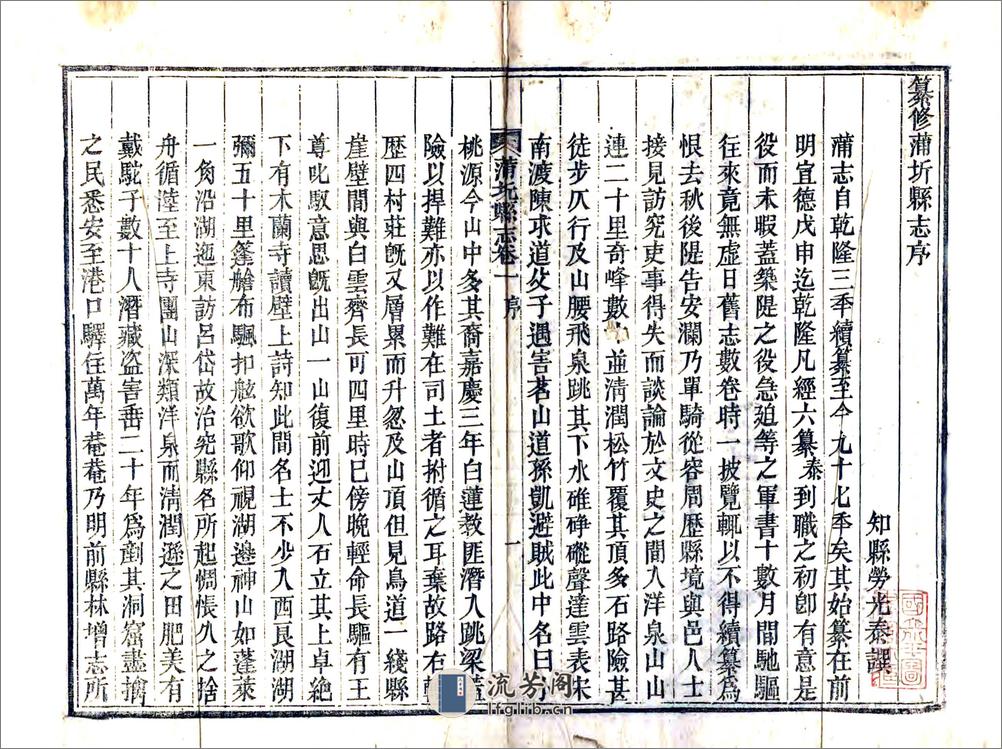 纂修蒲圻縣志序
知縣勞光泰譔
蒲志自乾隆三年續纂至今九十七年矣其始纂在前
明宣德戊申迄乾隆凡經六纂泰到職之初卽有意是
役而未暇蓋築隄之役急迫等之軍書十數月間馳驅
往來竟無虛日舊志數卷時一披覽輒以不得續纂爲
恨去秋後隄告安瀾乃單騎從容周歷縣境與邑人士
接見訪究吏事得失而談論於文史之間入洋泉山山
連二十里奇峰數 並淸潤松竹覆其頂多石路險甚
徒步仄行及山腰飛泉跳其下水碓碀磫聲達雲表宋
南渡陳求道父子遇害茗山道孫凱避賊此中名曰
桃源今山中多其裔嘉慶三年白蓮教匪濳入跳梁
險以捍難亦以作難在司土者拊循之耳棄故路右
歷四村莊旣又層累而升忽及山頂但見鳥道一綫縣
崖壁間與白雲齊長可四里時巳傍晚輕命長驅有王
尊叱馭意思旣出山一山復前迎丈人石立其上卓絶
下有木蘭寺讀壁上詩知此間名士不少入西良湖湖
彌五十里篷艙布颿扣舷欲歌仰視湖邊神山如蓬萊
一角沿湖迤東訪呂岱故治究縣名所起惆悵久之捨
舟循陸至上寺團山深類洋泉而淸潤遜之田肥美有
戴駝子數十人濳藏盗害垂二十年爲劀其洞窟盡擒
之民悉安至港口驛住萬年菴菴乃明前縣林增志所
蒲圻縣志卷一
序
一
流芳阁
lfglib.cn